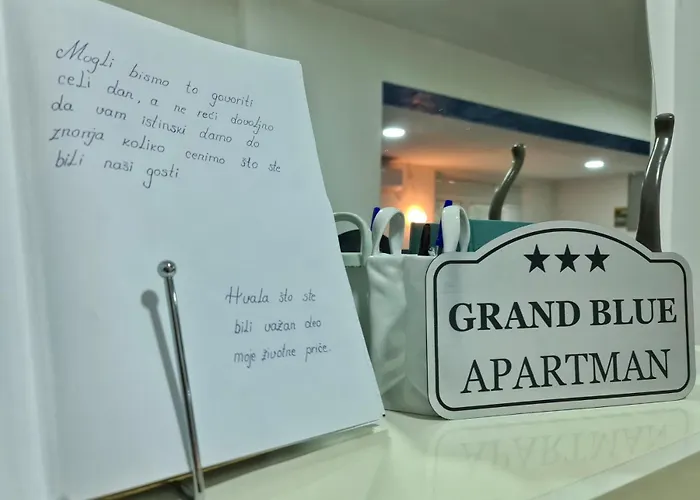 Mogli bismo to govoriti
celi dan, a ne reći dovoljno
da vam istinski damo do
znanja koliko cenimo što ste
bili naši gosti
Hvala što ste
bili važan deo
moje životne priče.
GRAND BLUE
APARTMAN